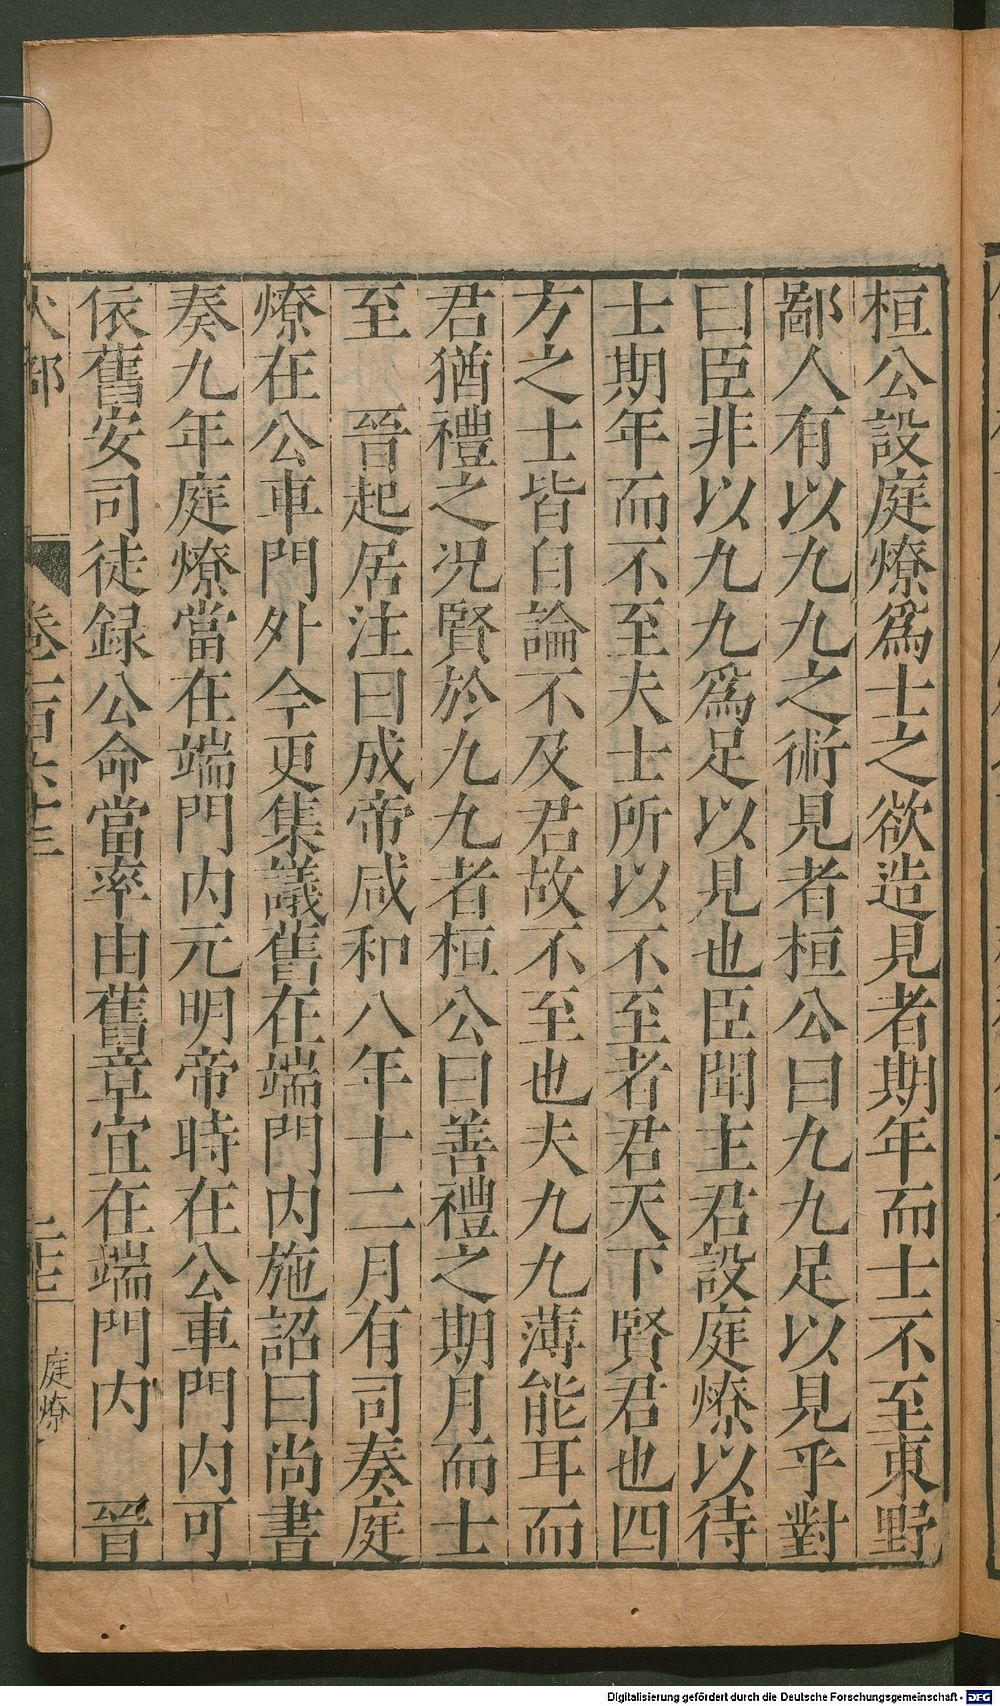 桓公設庭燎爲士之欲造見者期年而士不至東野
鄙人有以九九之術見者桓公曰九九足以見乎對
曰臣非以九九爲足以見也臣聞主君設庭燎以待
士期年而不至夫士所以不至者君天下賢君也四
方之士皆自論不及君故不至也夫九九薄能耳而
君猶禮之况賢於九九者桓公曰善禮之期月而士
至　晉起居注曰成帝咸和八年十二月有司奏庭
燎在公車門外今更集議舊在端門内施詔曰尚書
奏九年庭燎當在端門内元明帝時在公車門内可
依舊安司徒録公命當率由舊章宜在端門内　晉
火部
卷一百六十三
二十七
庭燎
Digitalisierung gefördert durch die Deutsche Forschungsgemeinschaft - DFG